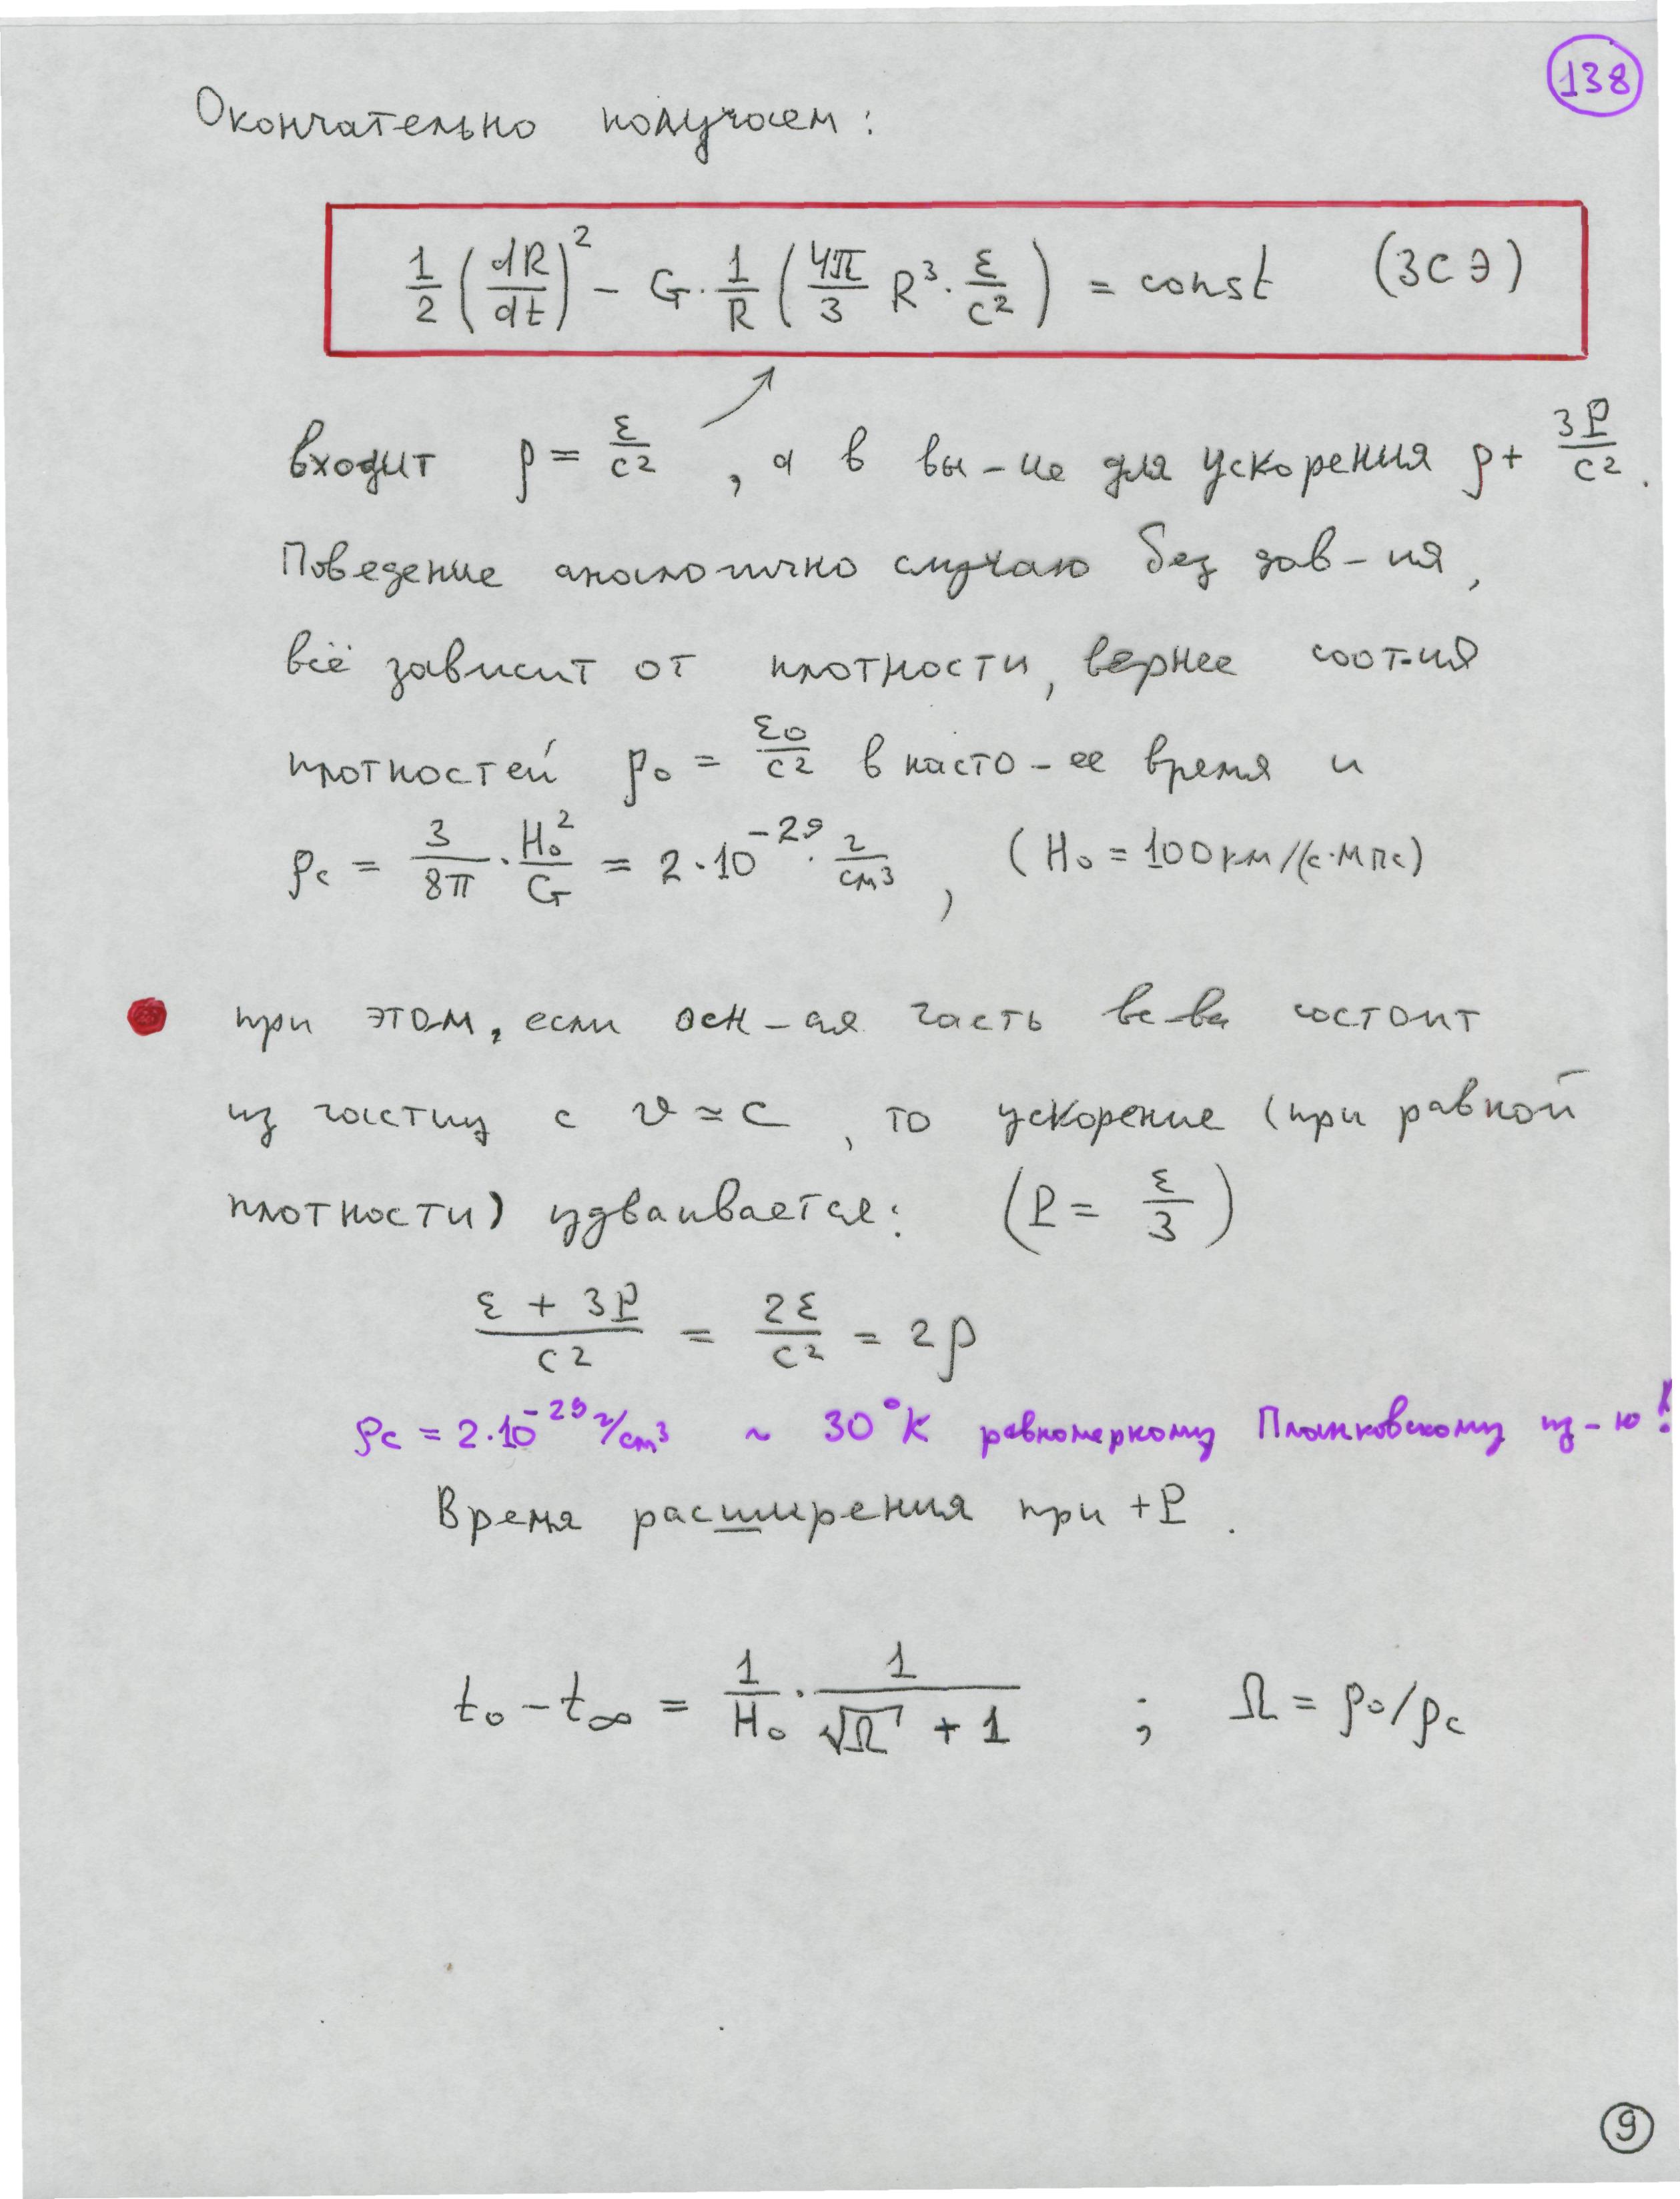 138
Окончательно получаем:
1/2 (dR/dt)² − G · 1/R (4π/3 R³ · ε/c²) = const (ЗСЭ)
входит ρ = ε/c² , а в вы-ие для ускорения ρ + 3P/c².
Поведение аналогично случаю без дав-ия,
всё зависит от плотности, вернее соот-ия
плотностей ρ₀ = ε₀/c² в насто-ее время и
ρc = 3/8π · H₀²/G = 2·10⁻²⁹ · г/см³ , (H₀ = 100 км/(с·Мпс)
при этом, если осн-ая часть в-ва состоит
из частиц с v ≃ c , то ускорение (при равной
плотности) удваивается: (P = ε/3)
(ε + 3P)/c² = 2ε/c² = 2ρ
ρc = 2·10⁻²⁹ г/см³ ~ 30°K равномерному Планковскому из-ю!
Время расширения при +P.
t₀ − t∞ = 1/H₀ · 1/(√Ω + 1) ; Ω = ρ₀/ρc
9